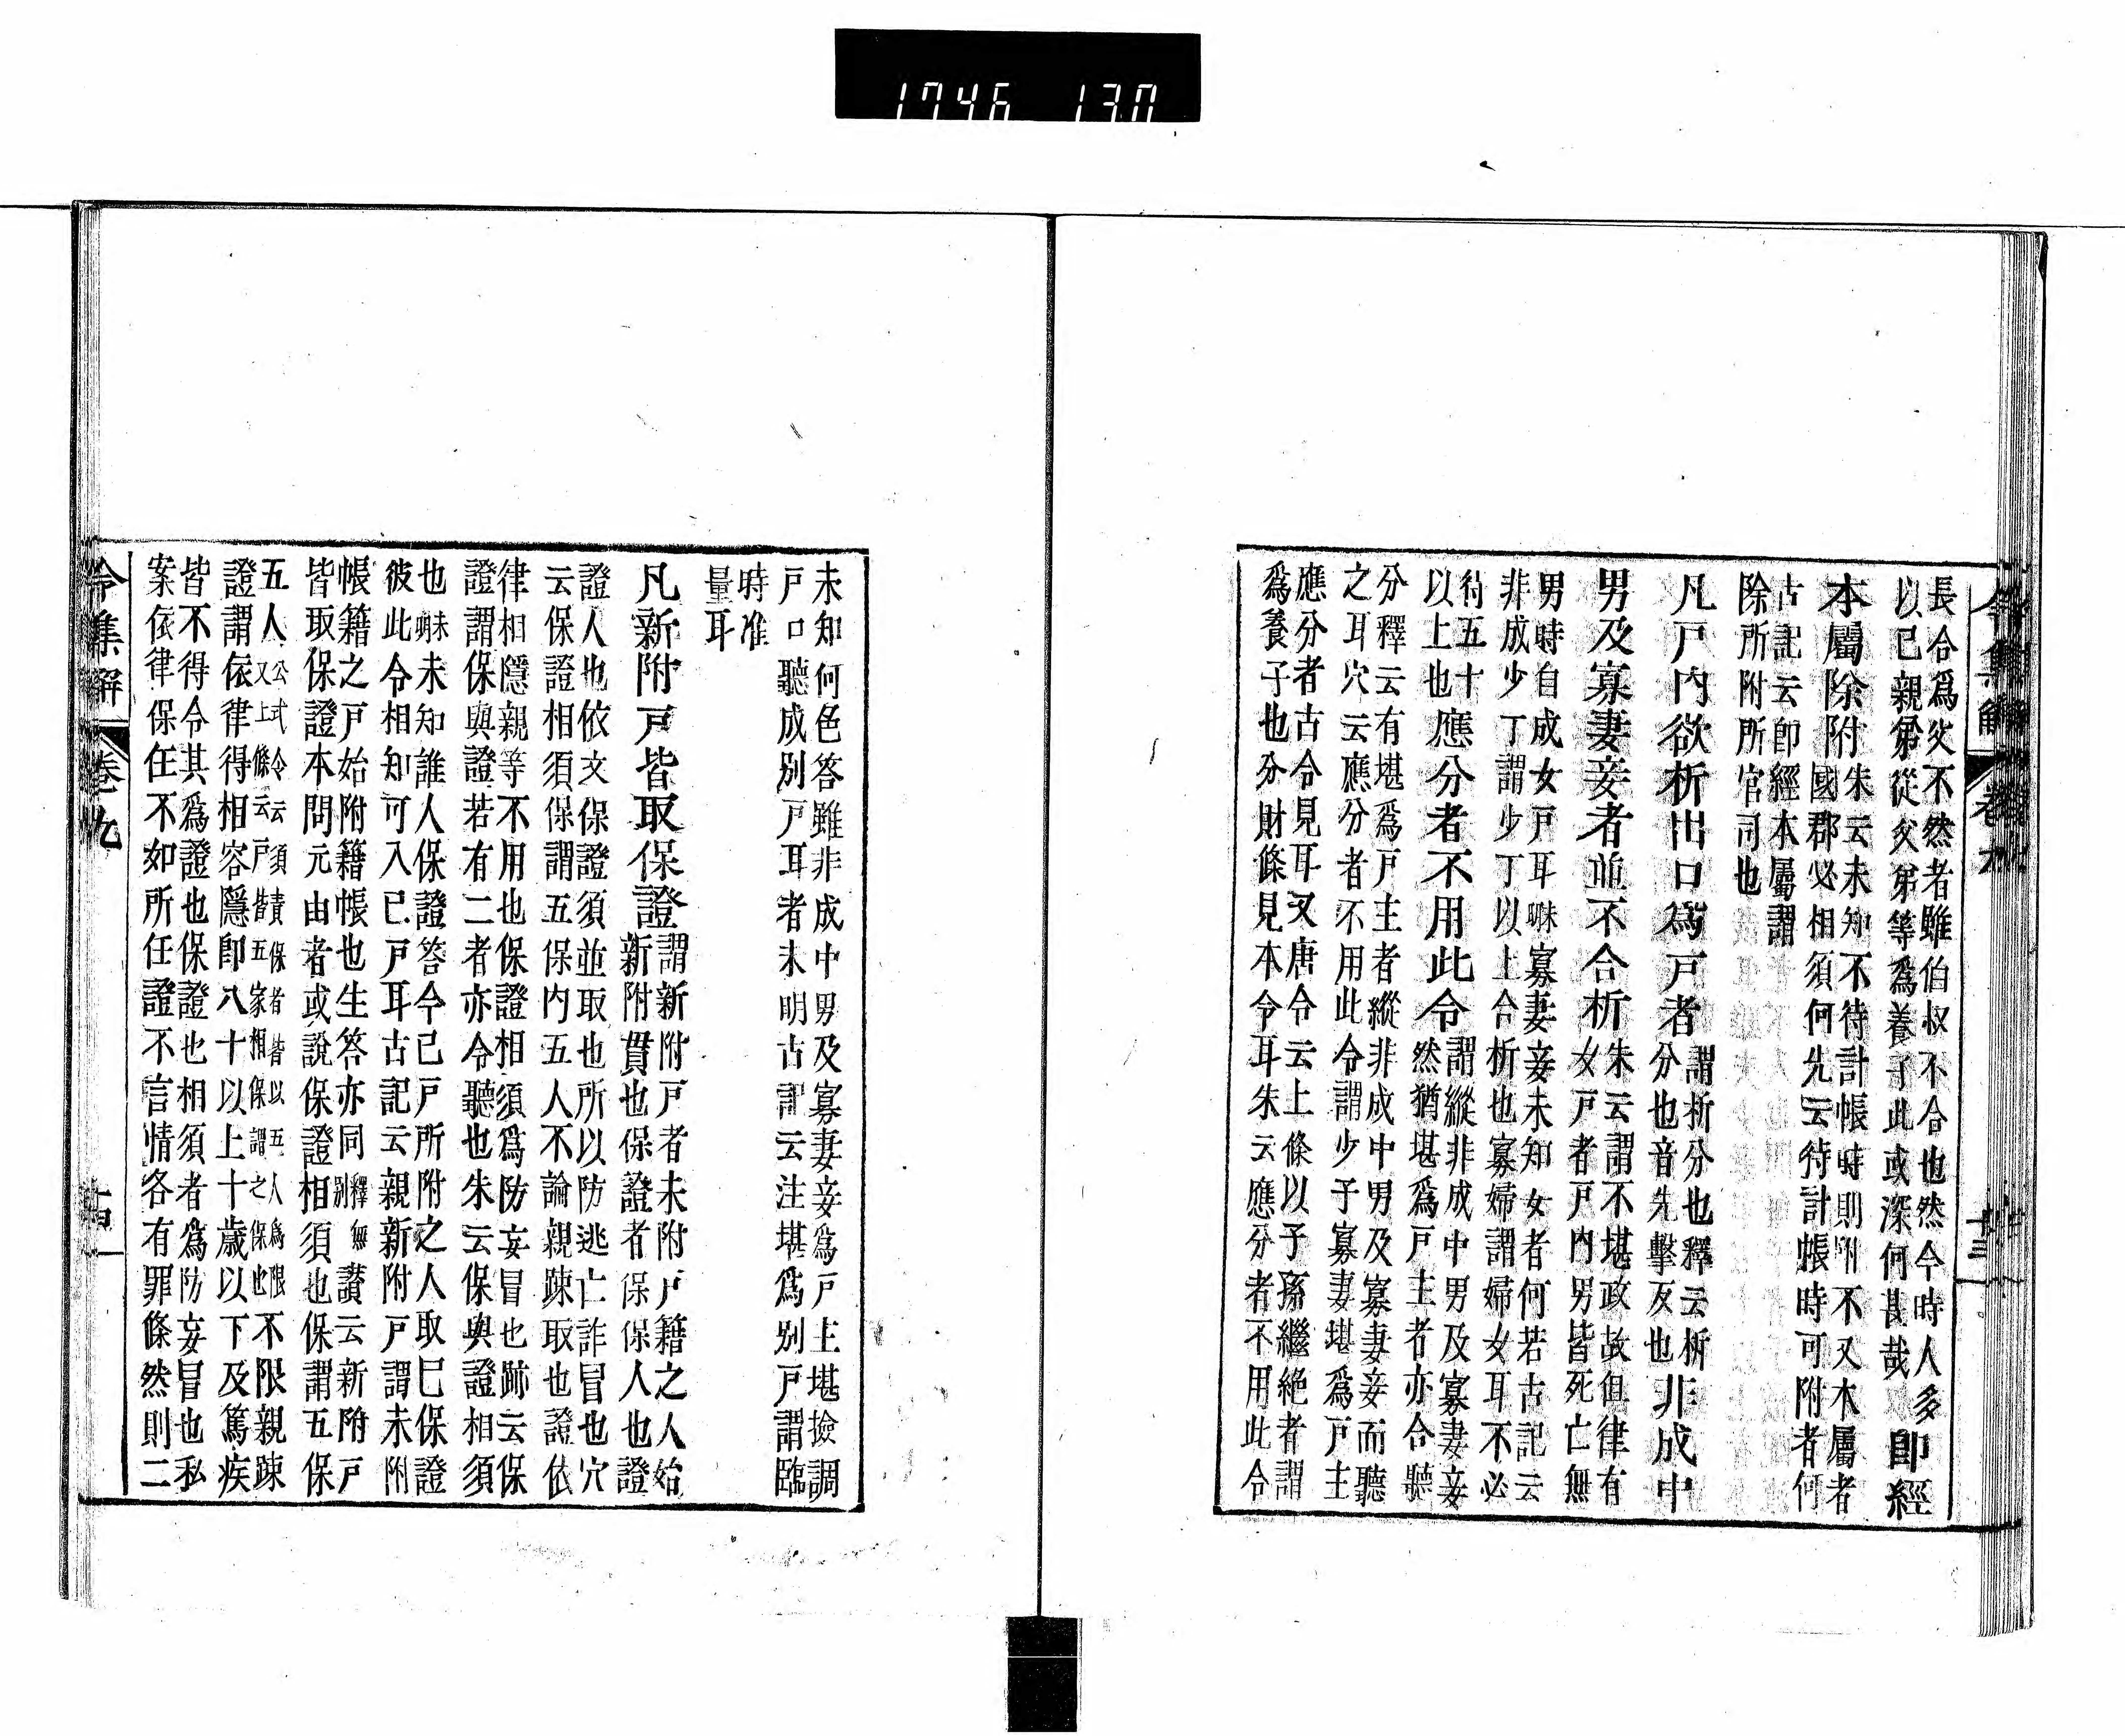 1746 130
令集解 卷九 十三
長合爲父不然者雖伯叔不合也然今時人多
以已親弟從父弟等爲養子此或深何甚哉 即經
本屬除附
朱云未知不待計帳時則附不又本屬者
國郡必相須何先云待計帳時可附者何
古記云即經本屬謂
除所附所官司也
凡戸内欲析出口爲戸者
謂析分也釋云析
分也音先擊反也
非成中
男及寡妻妾者並不合析
朱云謂不堪政故但律有
女戸者戸内男皆死亡無
男時自成女戸耳
寡妻妾未知女者何若古記云
非成少丁謂少丁以上合析也寡婦謂婦女耳不必
待五十
以上也
應分者不用此令
謂縱非成中男及寡妻妾
然猶堪爲戸主者亦合聽
分釋云有堪爲戸主者縱非成中男及寡妻妾而聽
之耳穴云應分者不用此令謂少子寡妻堪爲戸主
應分者古令見耳又唐令云上條以子孫繼絶者謂
爲養子也分財條見本令耳朱云應分者不用此令
未知何色答雖非成中男及寡妻妾爲戸主堪撿調
戸口聽成別戸耳者未明古記云注堪爲別戸謂臨
時准
量耳
凡新附戸皆取保證
謂新附戸者未附戸籍之人始
新附貫也保證者保保人也證
證人也依文保證須並取也所以防逃亡詐冒也穴
云保證相須保謂五保内五人不論親疎取也證依
律相隱親等不用也保證相須爲防妄冒也跡云保
證謂保與證若有二者亦令聽也朱云保與證相須
也
未知誰人保證答今己戸所附之人取巳保證
彼此令相知可入已戸耳古記云親新附戸謂未附
帳籍之戸始附籍帳也生答亦同
釋無
別
讃云新附戸
皆取保證本問元由者或說保證相須也保謂五保
五人
公式令云須責保者皆以五人爲限
又上條云戸皆五家相保謂之保也
不限親疎
證謂依律得相容隱即八十以上十歳以下及篤疾
皆不得令其爲證也保證也相須者爲防妄冒也私
案依律保任不如所任證不言情各有罪條然則二
令集解 卷九 十四